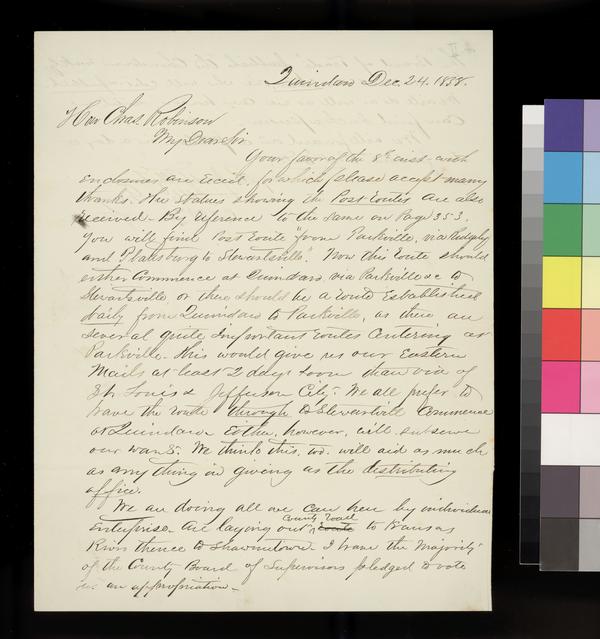 Quindaro Dec. 24. 1858.
Hon Chas. Robinson
My Dear Sir
Your favor of the 8th inst. with
enclosures are recd., for which please accept many
thanks. The Statues showing the Post Routes are also
received. By reference to the same on Page 353,
you will find Post route "from Parkville, via
and Plattsburg to Stewartsville". Now this route should
either Commence at Quindaro, via Parkville &c to
Stewartsville, or there should be a route Established
daily from Quindaro to Parkville, as there are
several quite important routes Centering at
Parkville. This would give us our Eastern
Mails at least 2 days soon than via of
St. Louis & Jefferson City. We all prefer to
have the route through to Stewartsville Commence
at Quindaro. Either, however, will subserve
our wants. We think this, too, will aid as much
as any thing in giving us the distributing
office.
We are doing all we can here by individual
enterprise. Are laying out County road route to Kansas
River thence to Shawnetown. I have the Majority
of the County Board of Supervisors pledged to vote
us an appropriation.